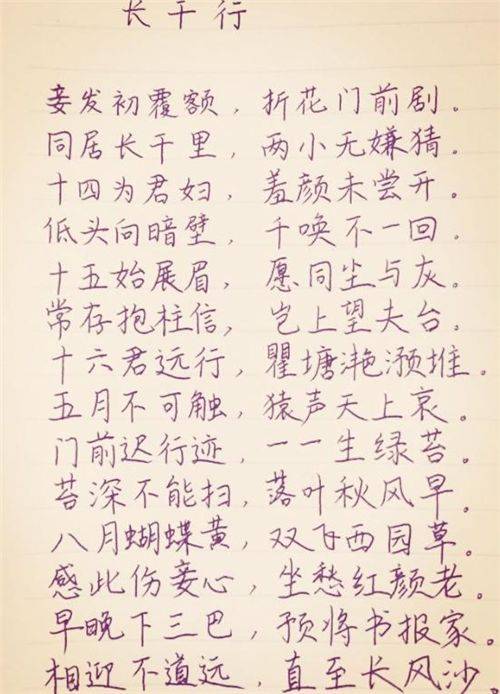 长干行
妾发初覆额，折花门前剧。
同居长干里，两小无嫌猜。
十四为君妇，羞颜未尝开。
低头向暗壁，千唤不一回。
十五始展眉，愿同尘与灰。
常存抱柱信，岂上望夫台。
十六君远行，瞿塘滟滪堆。
五月不可触，猿声天上哀。
门前迟行迹，一一生绿苔。
苔深不能扫，落叶秋风早。
八月蝴蝶黄，双飞西园草。
感此伤妾心，坐愁红颜老。
早晚下三巴，预将书报家。
相迎不道远，直至长风沙。